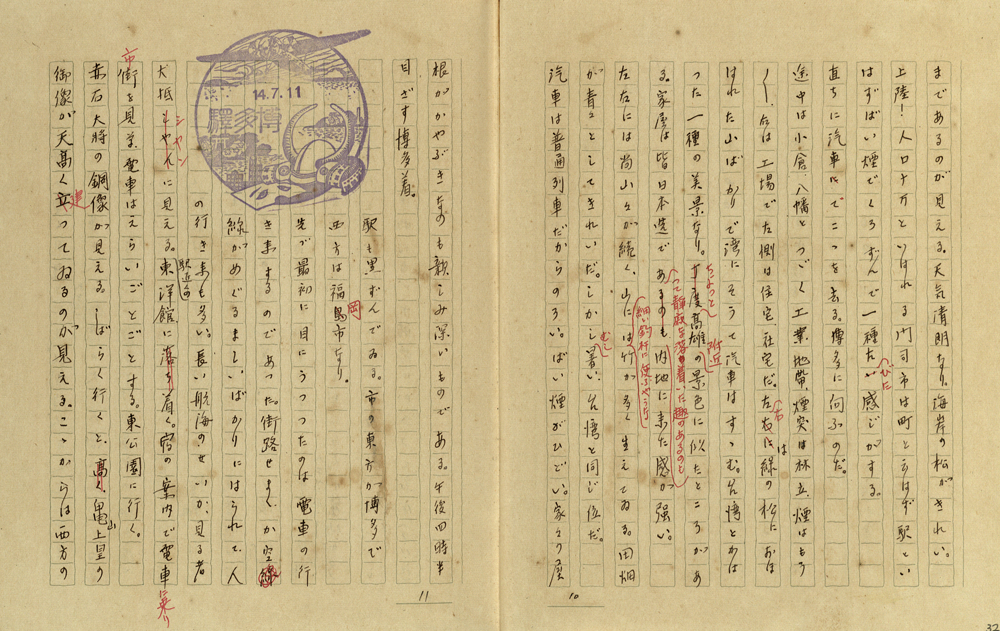 まであるのが見える。天気清朗なり。海岸の松がきれい。
上陸!人口十万といはれる門司市は町と云はず駅とい
はずばい煙でくろずんで一種な感じがする。
へんな
直ちに汽車にてこゝを去る。博多に向ふのだ。
途中は小倉、八幡とつゞく工業地帯、煙突は林立、煙はもう
〳〵、右は工場で左側は住宅社宅だ。左右には緑の松におほ
右
は
はれた山ばかりで湾にそうて汽車はすゝむ。台湾とかは
つた一種の美景なり。丁度高雄の景色に似たところがあ
ちょっと
附近
る。家屋は皆日本造であるのも内地に来た感が強い。
って静寂な落着いた趣のあるのと
左右には尚山々が続く、山には竹が多く生えてゐる。田畑
細い釣竿に使ふやうな
が青々としてきれいだ。しかし暑い、台湾と同じ位だ。
むし
汽車は普通列車だからのろい。ばい煙がひどい。家々の屋
10
32
根がかやぶきなのも親しみ深いものである。午後四時半
目ざす博多着。
駅も黒ずんでゐる。市の東方が博多で
西方は福島市なり。
岡
先づ最初に目にうつつたのは電車の行
き来するのであつた。街路せまく、か空線
線がめぐるましいばかりにはられて、人
の行き来も多い。長い航海のせいか、見る者
大抵もやんに見える。東洋館に落ち着く。宿の案内で電車
シヤン
駅近くの
乗り
街を見る。電車はえらいごとごとする。東公園に行く。
市
赤石大将の銅像が見える。しばらく行くと、高く亀上皇の
山
御像が天高く立つてゐるのが見える。こゝからは西方の
建
11
14.7.11
博多驛